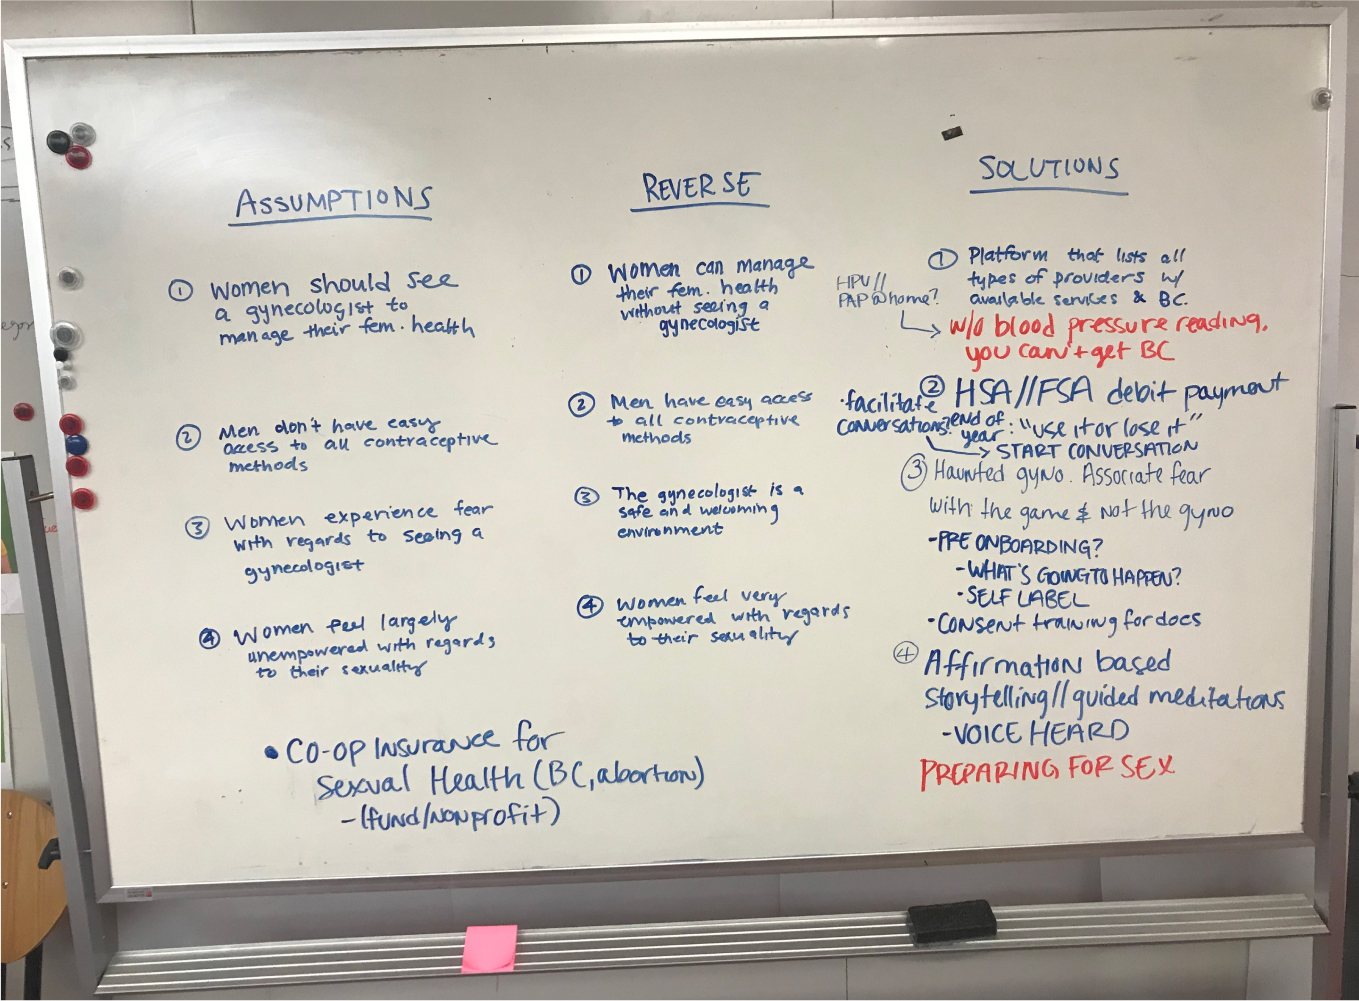 ASSUMPTIONS
① Women should see
a gynecologist to
manage their fem. health
② Men don't have easy
access to all contraceptive
methods
③ Women experience fear
with regards to seeing a
gynecologist
④ Women feel largely
unempowered with regards
to their sexuality
• CO-OP INSURANCE for
Sexual Health (BC, abortion)
- (fund/nonprofit)
REVERSE
① Women can manage
their fem. health
without seeing a
gynecologist
② Men have easy access
to all contraceptive
methods
③ The gynecologist is a
safe and welcoming
environment
④ Women feel very
empowered with regards
to their sexuality
SOLUTIONS
① Platform that lists all
types of providers w/
available services & BC.
HPV//
PAP@home?
w/o blood pressure reading,
you can't get BC
② HSA//FSA debit payment
· facilitate
conversations?
end of
year: "use it or lose it"
START CONVERSATION
③ Haunted gyno. Associate fear
with the game & not the gyno
- PRE ONBOARDING?
- WHAT'S GOING TO HAPPEN?
· SELF LABEL
· CONSENT training for docs
④ Affirmation based
storytelling//guided meditations
- VOICE HEARD
PREPARING FOR SEX